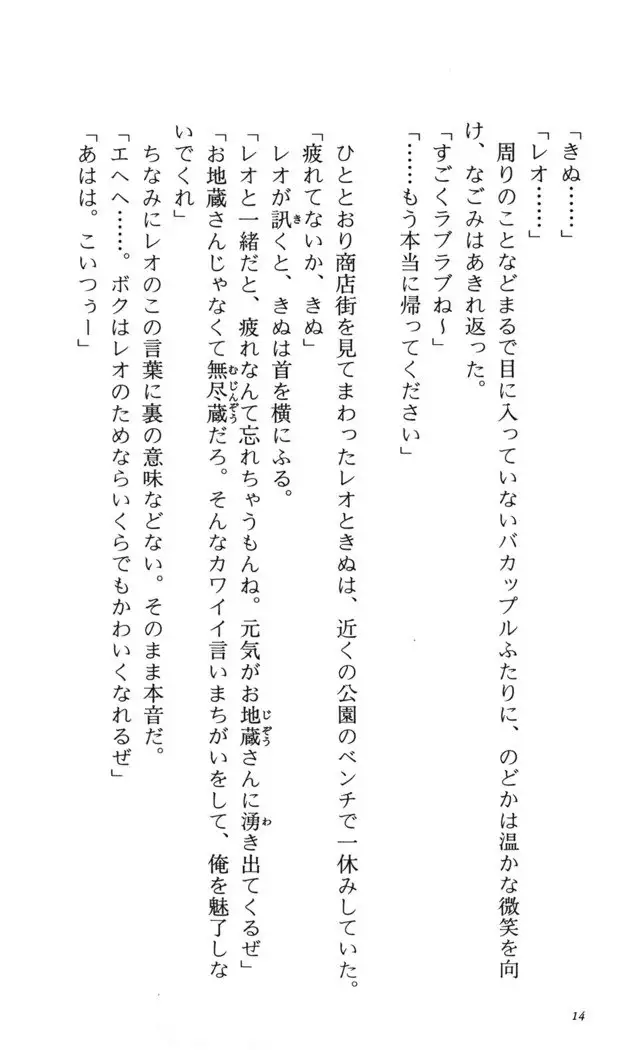 「きぬ……」
「レオ……」
周りのことなどまるで目に入っていないバカップルふたりに、のどかは温かな微笑を向
け、なごみはあきれ返った。
「すごくラブラブね〜」
「……もう本当に帰ってください」
ひととおり商店街を見てまわったレオときぬは、近くの公園のベンチで一休みしていた。
「疲れてないか、きぬ」
レオが訊くと、きぬは首を横にふる。
「レオと一緒だと、疲れなんて忘れちゃうもんね。元気がお地蔵さんに湧き出てくるぜ」
「お地蔵さんじゃなくて無尽蔵だろ。そんなカワイイ言いまちがいをして、俺を魅了しな
いでくれ」
ちなみにレオのこの言葉に裏の意味などない。そのまま本音だ。
「エへへ……。ボクはレオのためならいくらでもかわいくなれるぜ」
「あはは。こいつぅー」
14